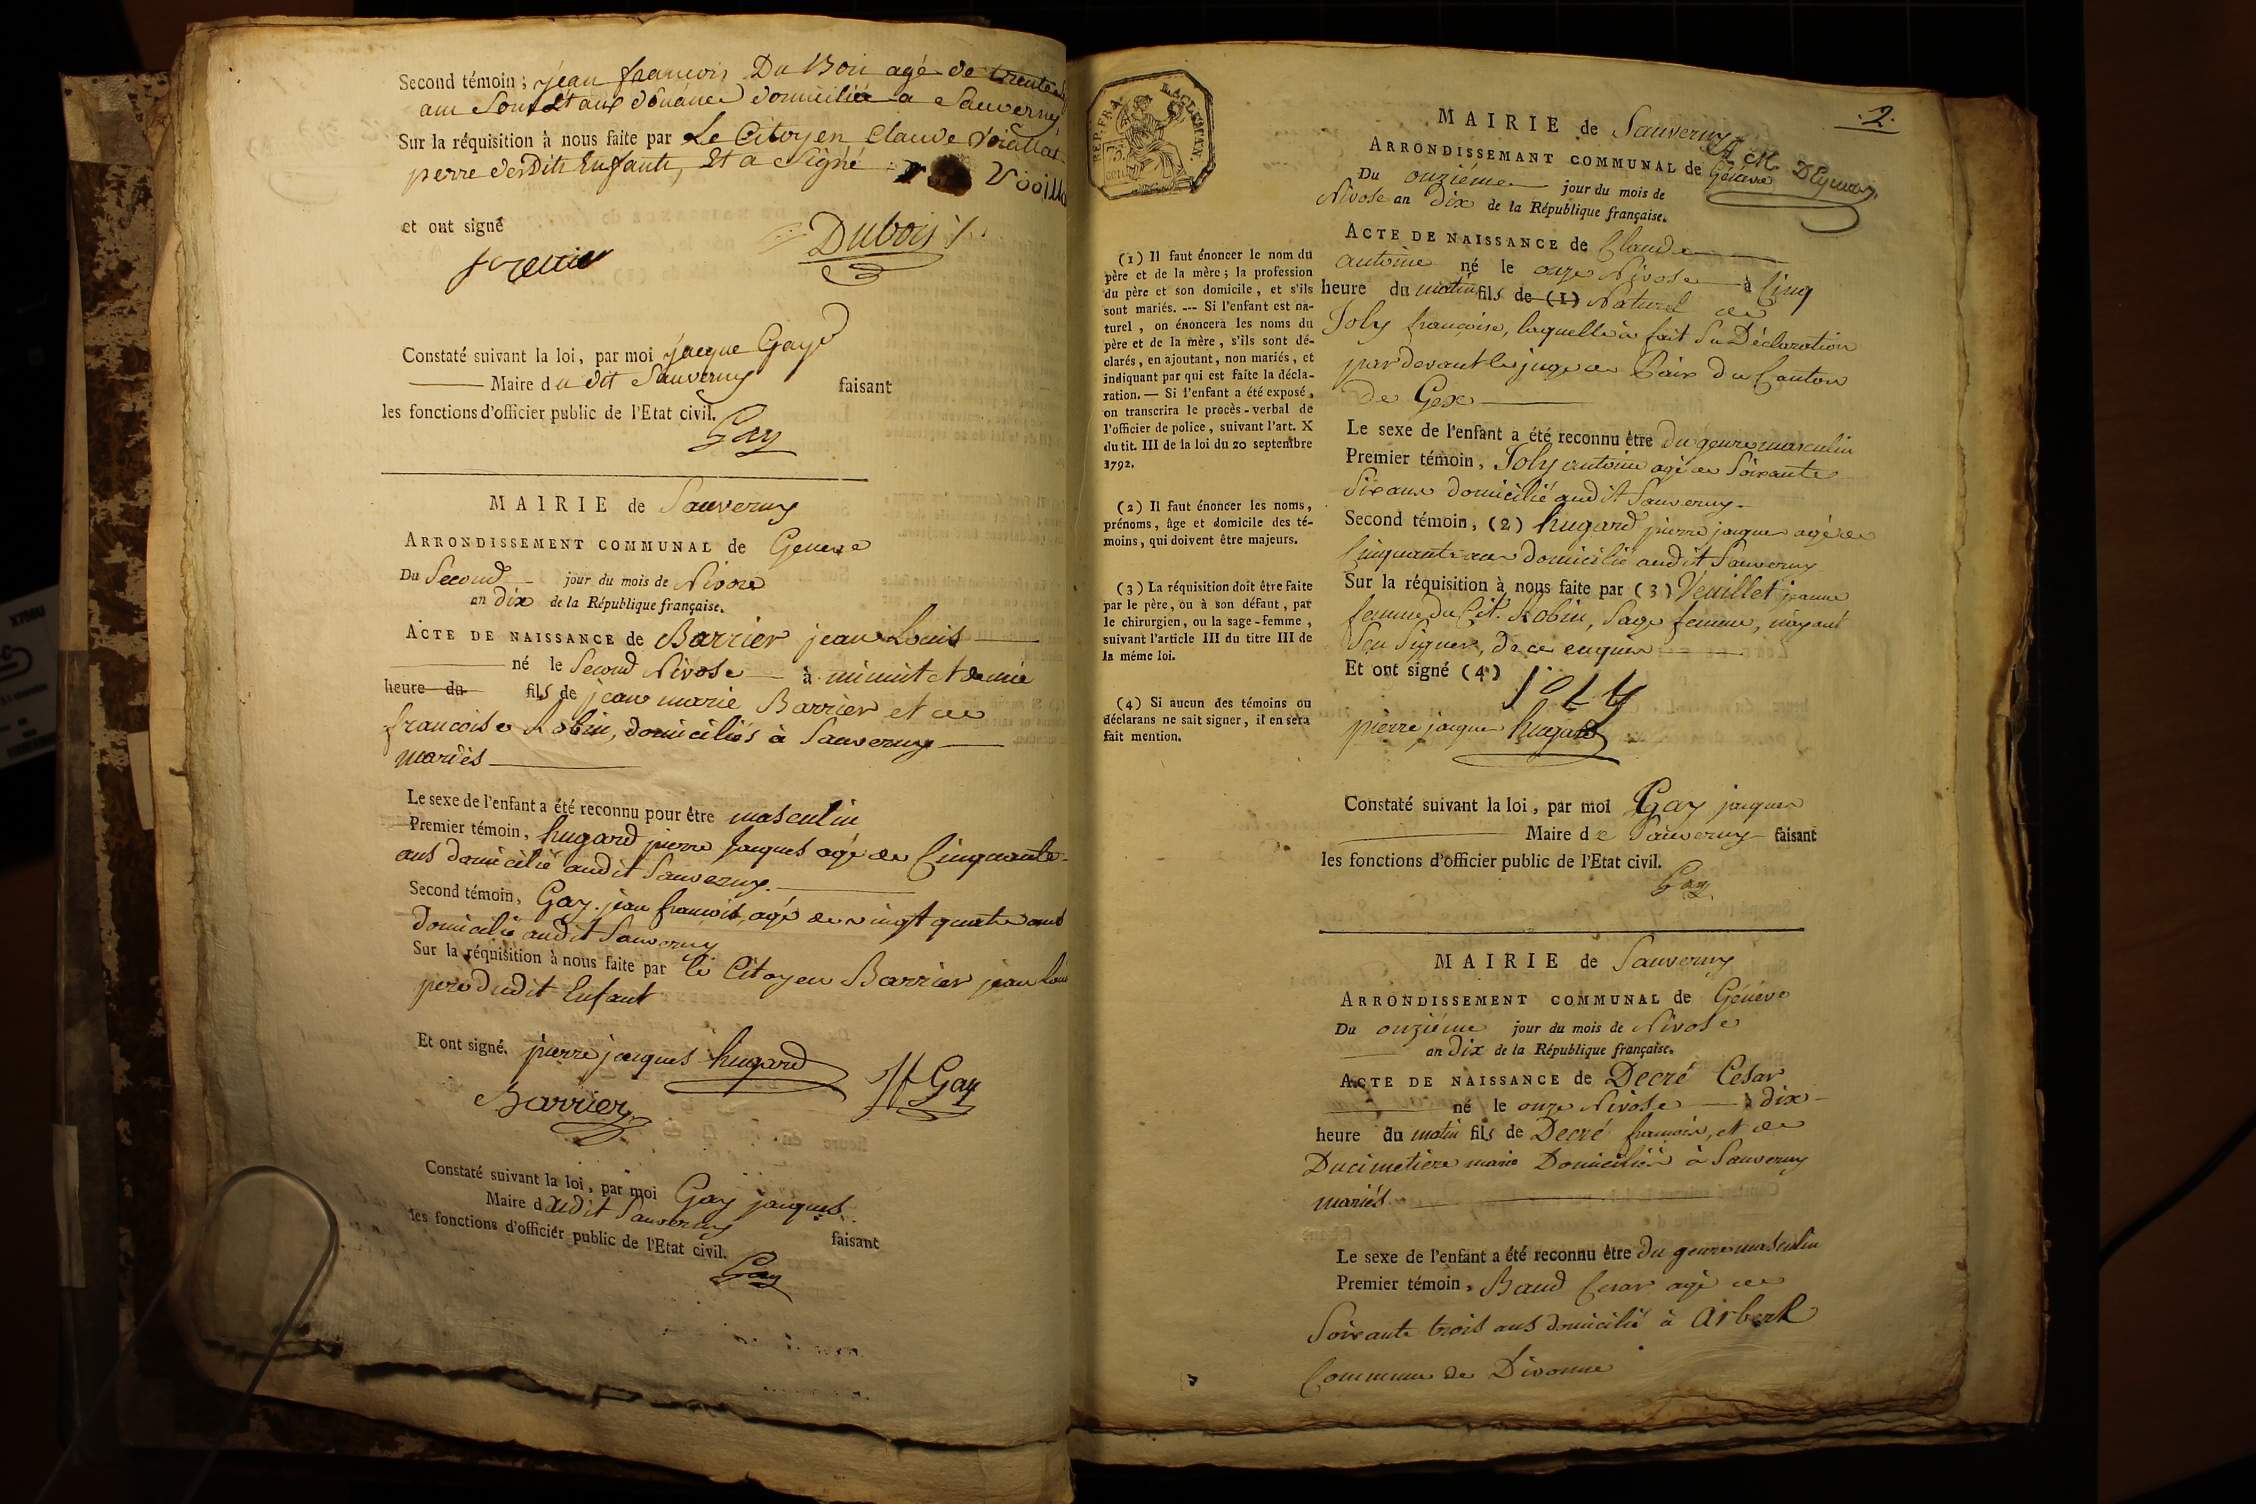 Second témoin ; jean francois Du Bois agé de trente
ans Domicilié a Sauverny
Sur la réquisition à nous faite par Le Citoyen Claude
perre desdits Enfants, Et a Signé
et ont signé
Dubois
Constaté suivant la loi, par moi jacque Gay
Maire du dit Sauverny faisant
les fonctions d'officier public de l'Etat civil.
Gay
MAIRIE de Sauverny
ARRONDISSEMENT COMMUNAL de Geneve
Du Second jour du mois de Nivose
an dix de la République française.
ACTE DE NAISSANCE de Barrier jean Louis
né le Second Nivose à minuit et demie
heure du fils de jean marie Barrier et de
francoise Robin, domiciliés à Sauverny
mariés
Le sexe de l'enfant a été reconnu pour être masculin
Premier témoin, hugard pierre Jacques agé de Cinquante
ans domicilié audit Sauverny.
Second témoin, Gay jean francois, agé de vingt quatre ans
domicilié audit Sauverny
Sur la réquisition à nous faite par le Citoyen Barrier jean Lou
pere dudit Enfant
Et ont signé. pierre jacques hugard
Barrier
JF Gay
Constaté suivant la loi, par moi Gay jacques
Maire dudit Sauverny faisant
les fonctions d'officier public de l'Etat civil.
Gay
REP. FRA.
75
cent
2.
MAIRIE de Sauverny
ARRONDISSEMANT COMMUNAL de Géneve
Du onziéme jour du mois de
Nivose an dix de la République française.
ACTE DE NAISSANCE de Claude
antoine né le onze Nivose à Cinq
heure du matin fils de (1) Naturel de
Joly francoise, laquelle à fait Sa Déclaration
pardevant le juge de Paix du Canton
de Gex
Le sexe de l'enfant a été reconnu être du genre masculin
Premier témoin, Joly antoine agé de Soixante
Six ans domicilié audit Sauverny
Second témoin, (2) hugard pierre jacques agé de
Cinquante ans domicilié audit Sauverny
Sur la réquisition à nous faite par (3) Veuillet jeanne
femme du Cit. Robin, Sage femme, n'ayant
Seu Signer, de ce enquis
Et ont signé (4)
joly
pierre jacques hugard
Constaté suivant la loi, par moi Gay jacques
Maire de Sauverny faisant
les fonctions d'officier public de l'Etat civil.
Gay
(1) Il faut énoncer le nom du
père et de la mère ; la profession
du père et son domicile, et s'ils
sont mariés. --- Si l'enfant est na-
turel, on énoncera les noms du
père et de la mère, s'ils sont dé-
clarés, en ajoutant, non mariés, et
indiquant par qui est faite la décla-
ration. — Si l'enfant a été exposé,
on transcrira le procès-verbal de
l'officier de police, suivant l'art. X
du tit. III de la loi du 20 septembre
1792.
(2) Il faut énoncer les noms,
prénoms, âge et domicile des té-
moins, qui doivent être majeurs.
(3) La réquisition doit être faite
par le père, ou à son défaut, par
le chirurgien, ou la sage-femme,
suivant l'article III du titre III de
la même loi.
(4) Si aucun des témoins ou
déclarans ne sait signer, il en sera
fait mention.
MAIRIE de Sauverny
ARRONDISSEMENT COMMUNAL de Généve
Du onziéme jour du mois de Nivose
an dix de la République française.
ACTE DE NAISSANCE de Decré Cesar
né le onze Nivose à dix
heure du matin fils de Decré francois, et de
Ducimetiere marie Domiciliés à Sauverny
mariés
Le sexe de l'enfant a été reconnu être du genre masculin
Premier témoin, Baud Cesar agé de
Soixante trois ans domicilié à Arbere
Commune de Divonne